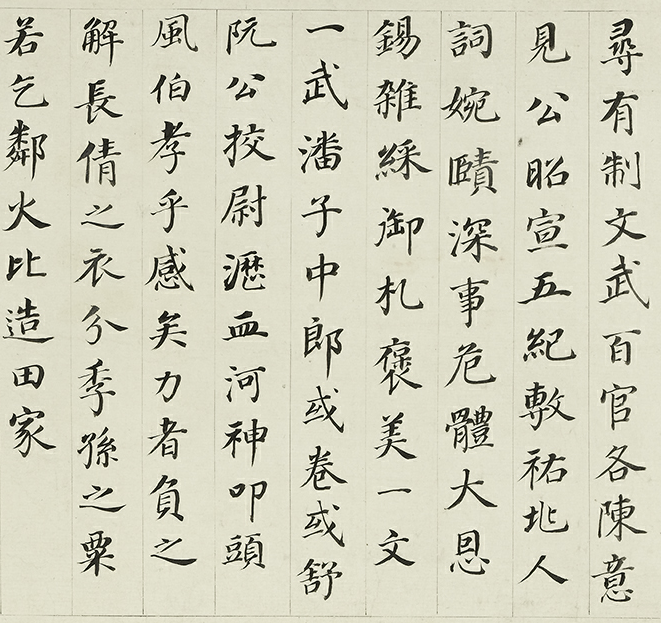 尋有制文武百官各陳意
見公昭宣五紀敷祐兆人
詞婉賾深事危體大恩
錫雜綵御札褒美一文
一武潘子中郎或卷或舒
阮公挍尉瀝血河神叩頭
風伯孝乎感矣力者負之
解長倩之衣分季孫之粟
若乞鄰火比造田家